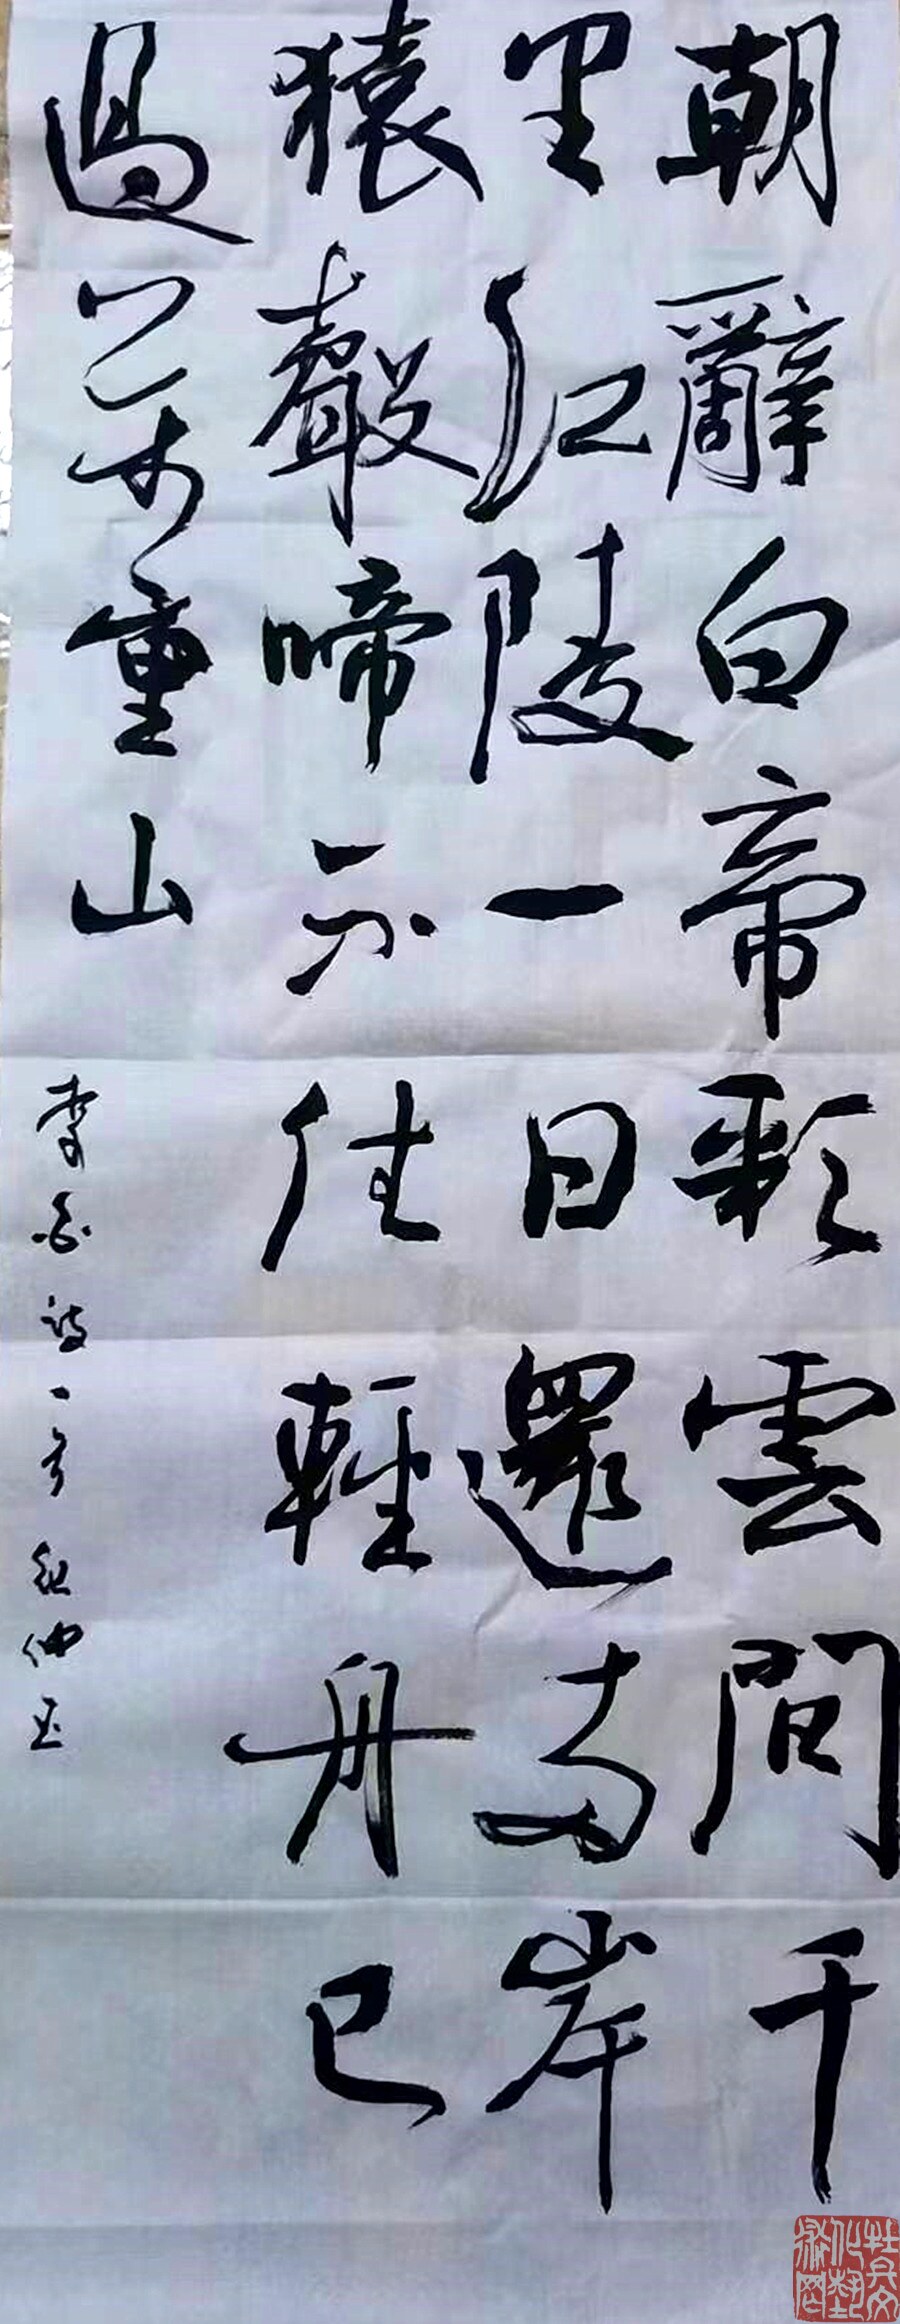 朝辭白帝彩雲間千
里江陵一日還兩岸
猿聲啼不住輕舟已
過萬重山
李白詩一首